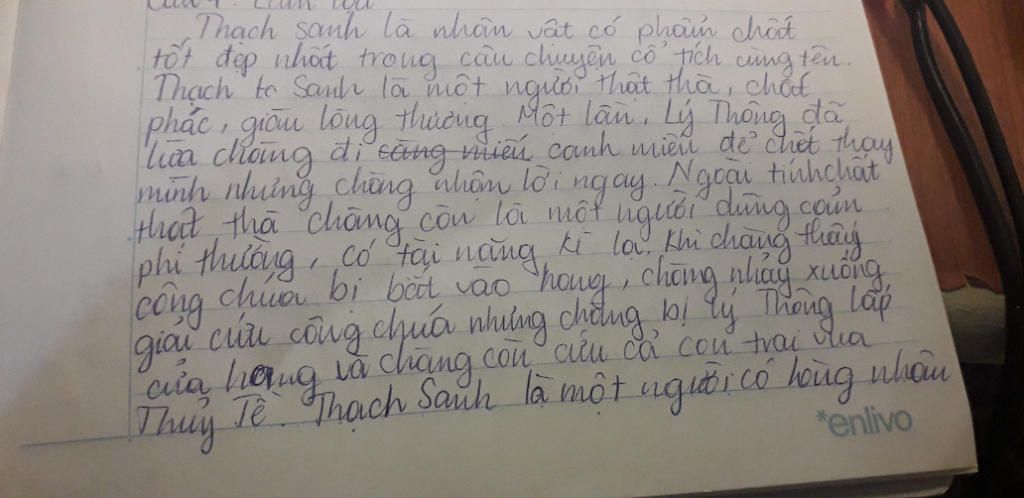 Thạch Sanh là nhân vật có phẩm chất
tốt đẹp nhất trong câu chuyện cổ tích cùng tên.
Thạch Sanh là một người thật thà, chất
phác, giàu lòng thương. Một lần, Lý Thông đã
lừa chàng đi canh miếu để chết thay
mình nhưng chàng nhận lời ngay. Ngoài tính chất
thật thà chàng còn là một người dũng cảm
phi thường, có tài năng kì lạ. Khi chàng thấy
công chúa bị bắt vào hang, chàng nhảy xuống
giải cứu công chúa nhưng chàng bị lý Thông lấp
cửa hang và chàng còn cứu cả con trai vua
Thuỷ Tề. Thạch Sanh là một người có lòng nhân
*enlivo